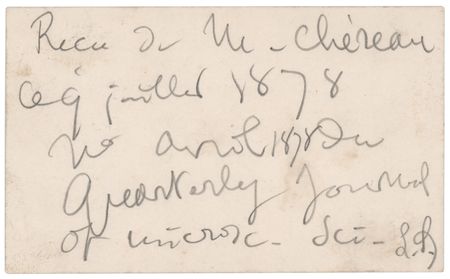 Recu de M. Chéreau
ce 9 juillet 1878
no avril 1878 du
Quarterly Journal
of microsc. Sci.